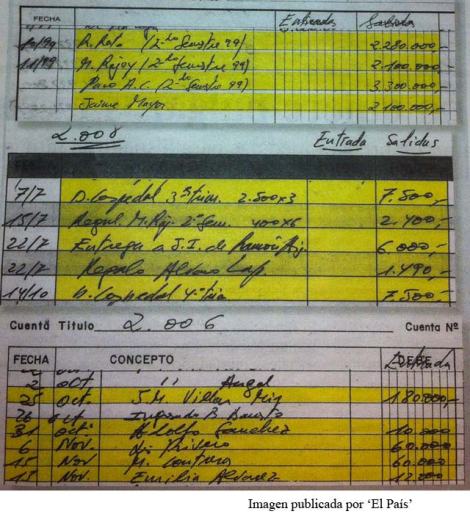 FECHA Entradas Salidas
10/99 R. Rato (2º Semestre 99) 2.280.000,-
11/99 M. Rajoy (2º Semestre 99) 2.100.000,-
Paco A.C. (2º Semestre 99) 3.300.000,-
Jaime Mayor 2.100.000,-
2.008 Entrada Salidas
7/7 D. Cospedal 3º trim. 2.500x3 7.500,-
15/7 M. Raj. 2º Sem. 400x6 2.400,-
22/7 Entrega a J.I. de 6.000,-
22/7 Regalo Alvaro Lap 1.490,-
14/10 D. Cospedal 4º 7.500,-
Cuenta Título 2.006 Cuenta Nº
FECHA CONCEPTO DEBE
2 oct " Angel
25 oct J.M Villar Mir 180.000,-
26 oct
31 oct. Adolfo Sanchez 10.000
6 Nov. 60.000
15 Nov M. Contreras 60.000
15 Nov. Emilio Alvarez 12.000
Imagen publicada por ‘El País’